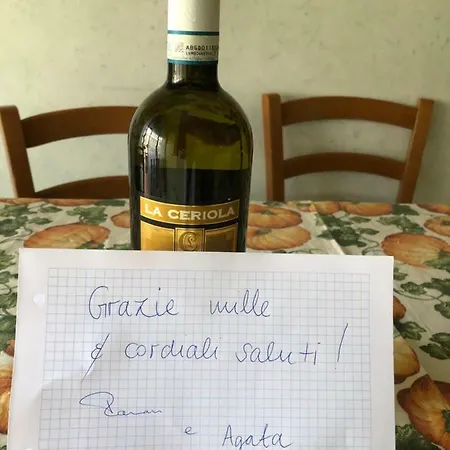 LA CERIOLA
Grazie mille
& cordiali saluti!
e Agata